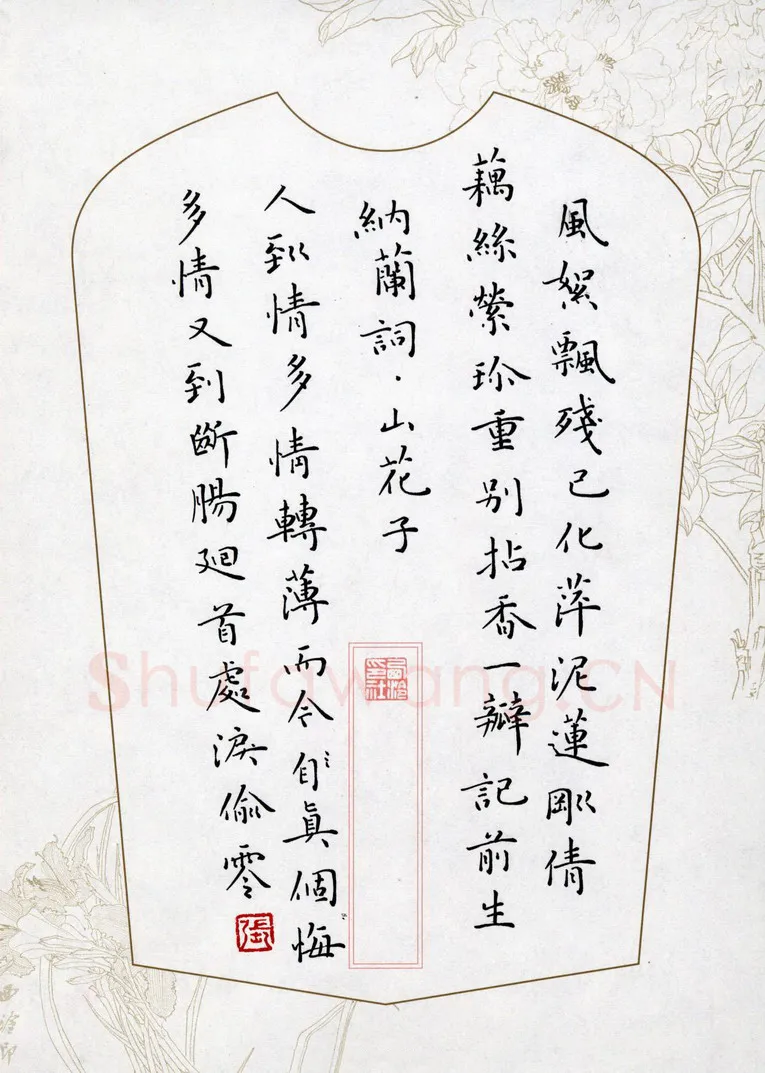 風絮飄殘已化萍泥蓮剛倩
藕絲縈珍重別拈香一瓣記前生
納蘭詞·山花子
人到情多情轉薄而今自眞個悔
多情又到斷腸廻首處淚偷零
張
西泠印社
Shufawang.CN
西泠印